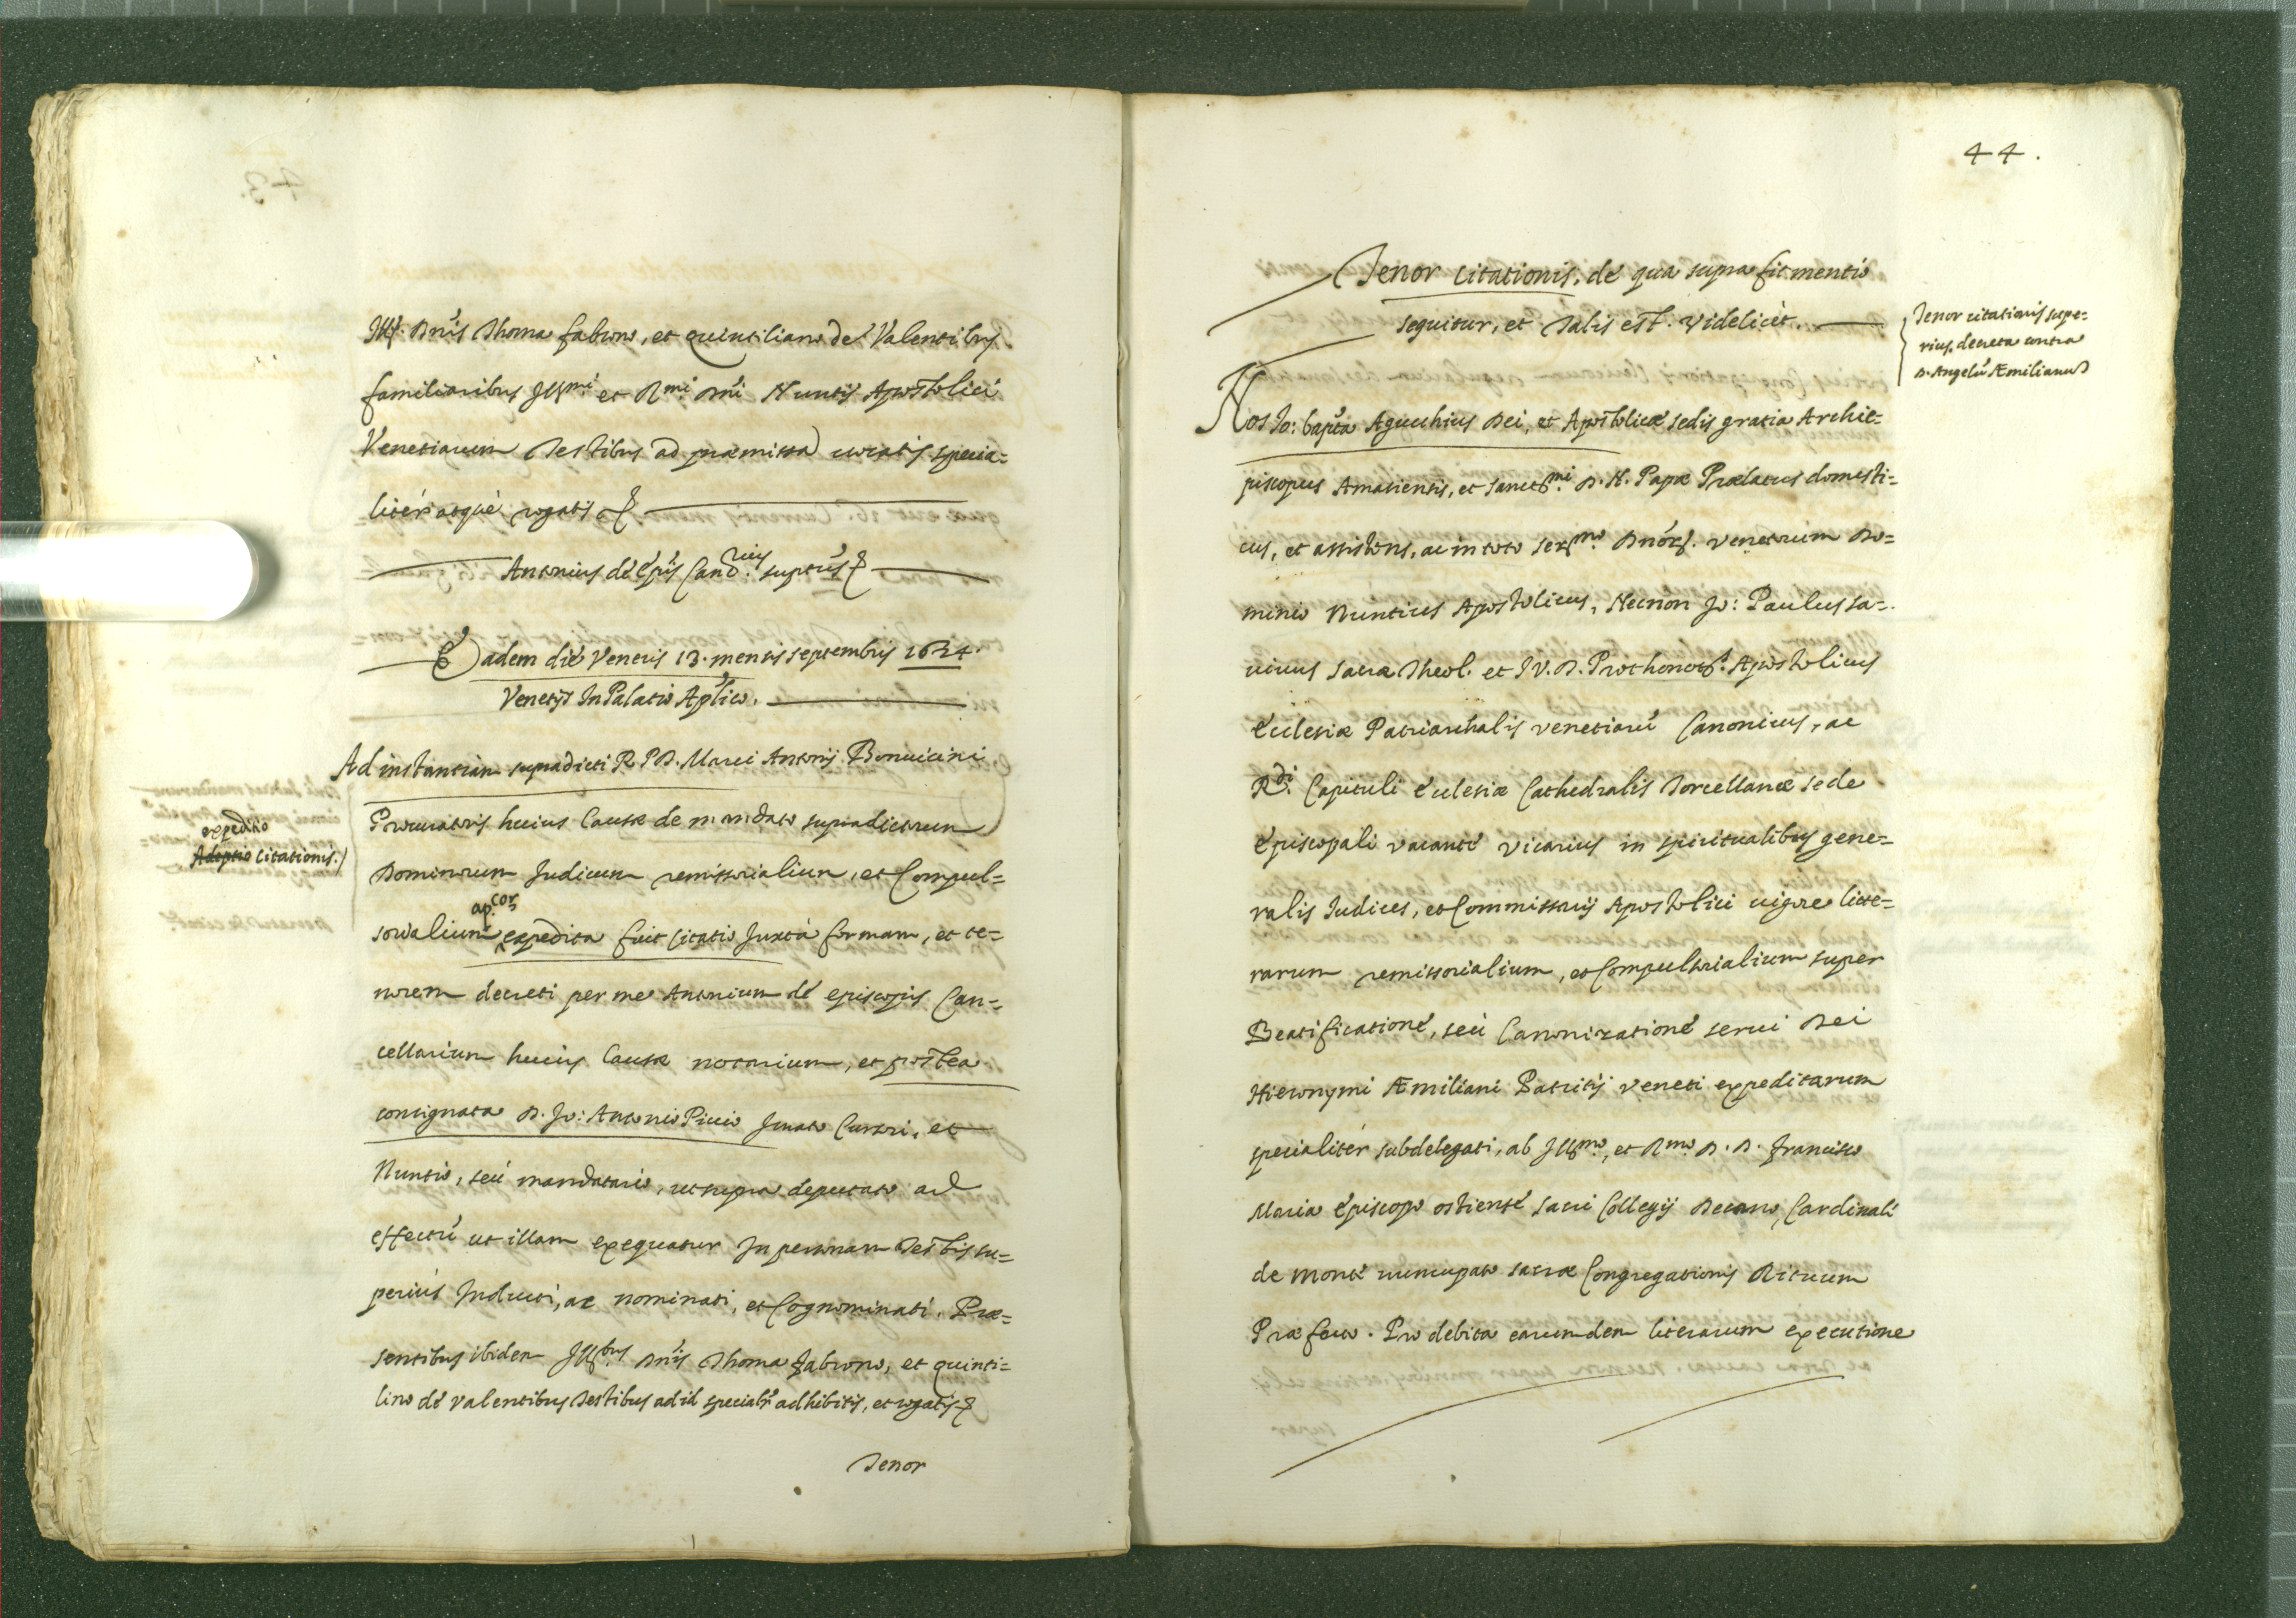 Ill. Dnis Thoma fabrono, et quintiliano de Valentibus
familiaribus Illmi. et Rmi. Dni Nuntij Apostolici
Venetiarum Testibus ad præmissa vocatis specia=
litér atque rogatis
Antonius de Epis Cancrius suptus
Eadem die Veneris 13. mensis septembris 1624.
Venetijs In Palatio Aplico.
Ad instantiam supradicti R. P. D. Marci Antonij Bonuicini
Procuratoris huius Causæ de mandato supradictorum
expeditio
Adeptio Citationis.
Dominorum Iudicum remissorialium, et Compul=
sorialium apcor expedita fuit Citatio Iuxta formam, et te=
norem decreti per me Antonium de episcopis Can=
cellarium huius Causæ notarium, et postea
consignata D. Io: Antonio Picio Iurato Cursori, et
Nuntio, seu mandatario, ut supra deputato ad
effectu ut illam exequatur In personam Testis su=
perius Inducti, ac nominati, et Cognominati. Præ=
sentibus ibidem Illbus. Dnis Thoma Fabrono, et quinti=
lino de Valentibus Testibus ad id specialr adhibitis, et rogatis
Tenor
44.
Tenor Citationis, de qua supra fit mentio
sequitur, et Talis est. Videlicèt.
Tenor citationis supe=
rius, decreta contra
D. Angelu Æmilianu
Nos Io: bapta Aguchius Dei, et Apostolicæ sedis gratia Archie=
piscopus Amasiensis, et sanctmi. D. N. Papæ Prælatus domesti=
cus, et assistens, ac in toto sermo. Dnor. Venetorum Do=
minio Nuntius Apostolicus, Necnon Io: Paulus sa=
uius sacræ Theol. et I V. D. Prothonots. Apostolicus
Ecclesiæ Patriarchalis Venetiaru Canonicus, ac
Rdi. Capituli Ecclesiæ Cathedralis Torcellanæ sede
Episcopali vacante vicarius in spiritualibus gene=
ralis Iudices, et Commissarij Apostolici uigore litte=
rarum remissorialium, et Compulsorialium super
Beatificatione, seu Canonizatione serui Dei
Hieronymi Æmiliani Patritij Veneti expeditarum
specialiter subdelegati, ab Illmo., et Rmo. D. D. Francisco
Maria Episcopo ostiense sacri Collegij Decano, Cardinali
de Monte nuncupato sacræ Congregationis Rituum
Præfecto. Pro debita earumdem literarum executione